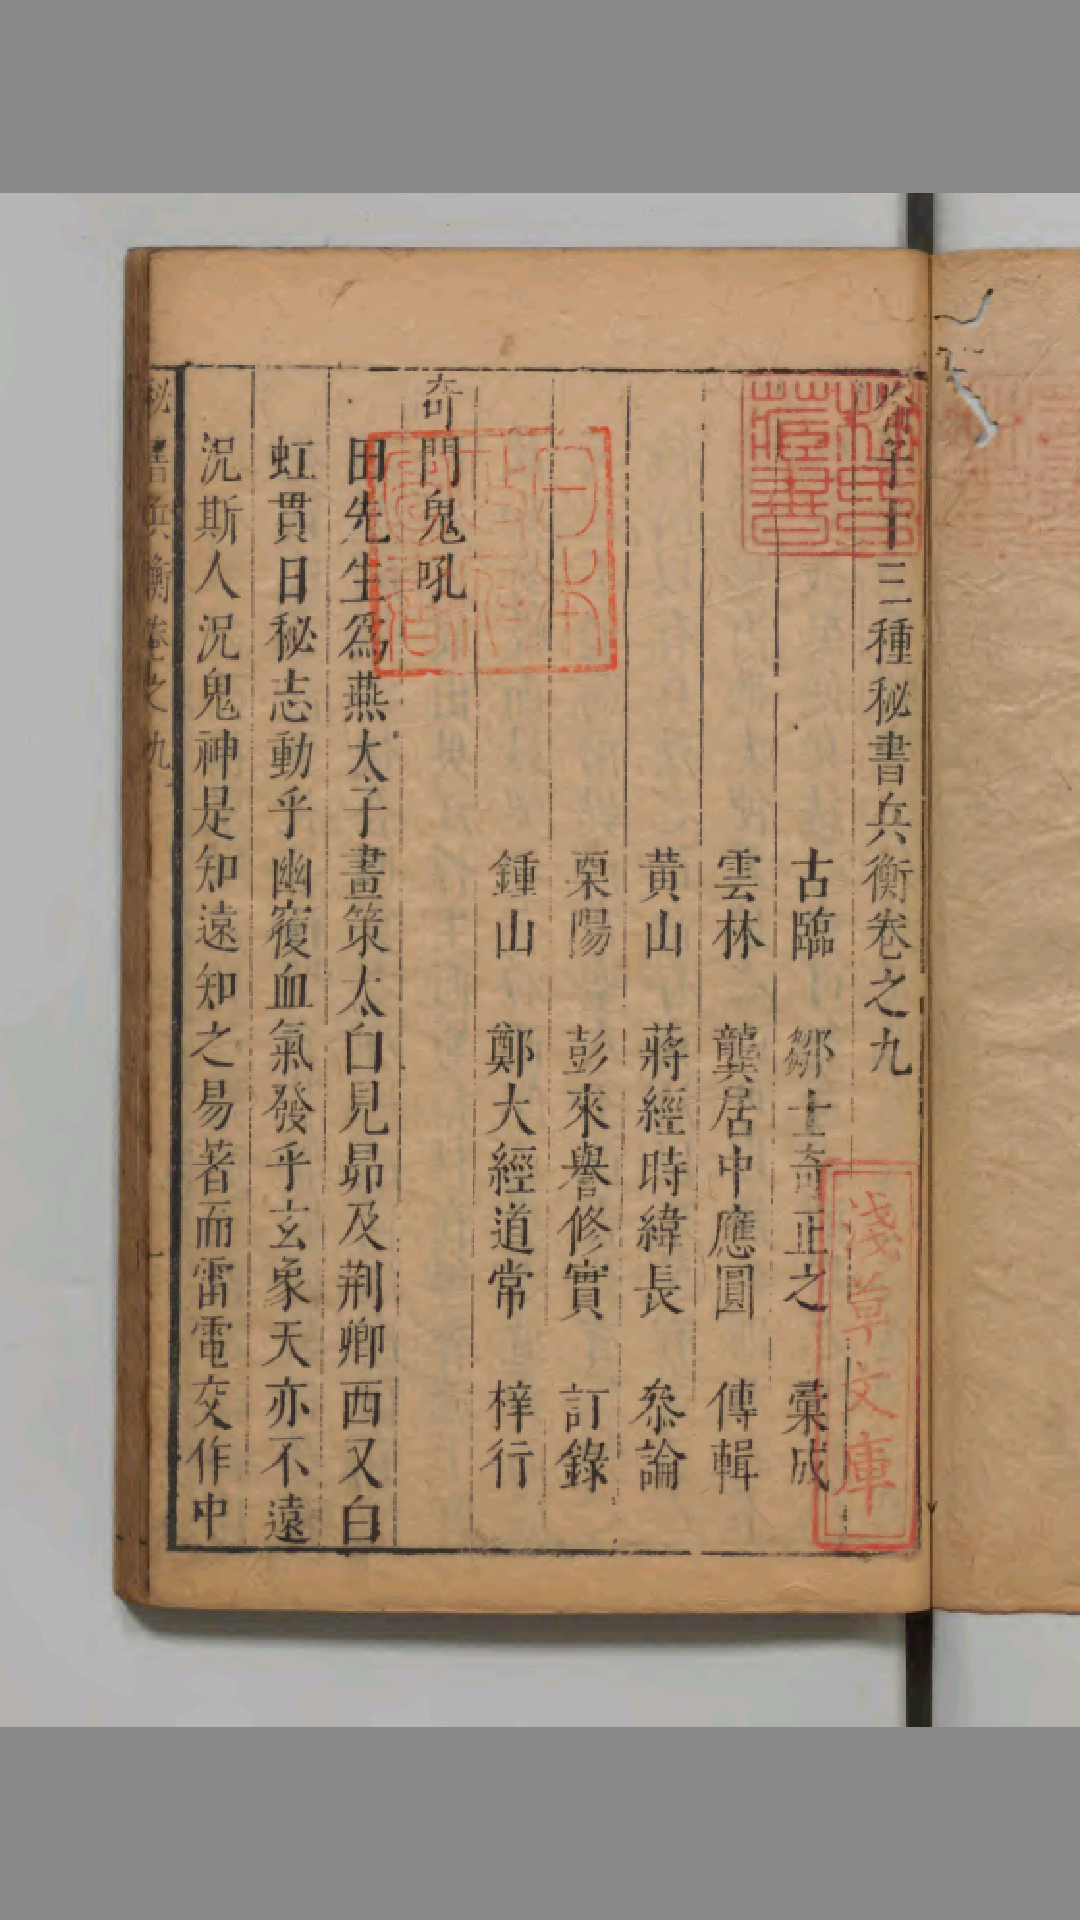 十三種秘書兵衡卷之九
古臨　鄒士奇正之　彙成
雲林　龔居中應圓　傳輯
黃山　蔣經時緯長　叅論
栗陽　彭來譽修實　訂錄
鍾山　鄭大經道常　梓行
奇門鬼吼
田先生爲燕太子畫策太白見昴及荆卿西又白
虹貫日秘志動乎幽竅血氣發乎玄象天亦不遠
況斯人況鬼神是知遠知之易著而雷電交作中
秘書兵衡卷之九
一
淺草文庫